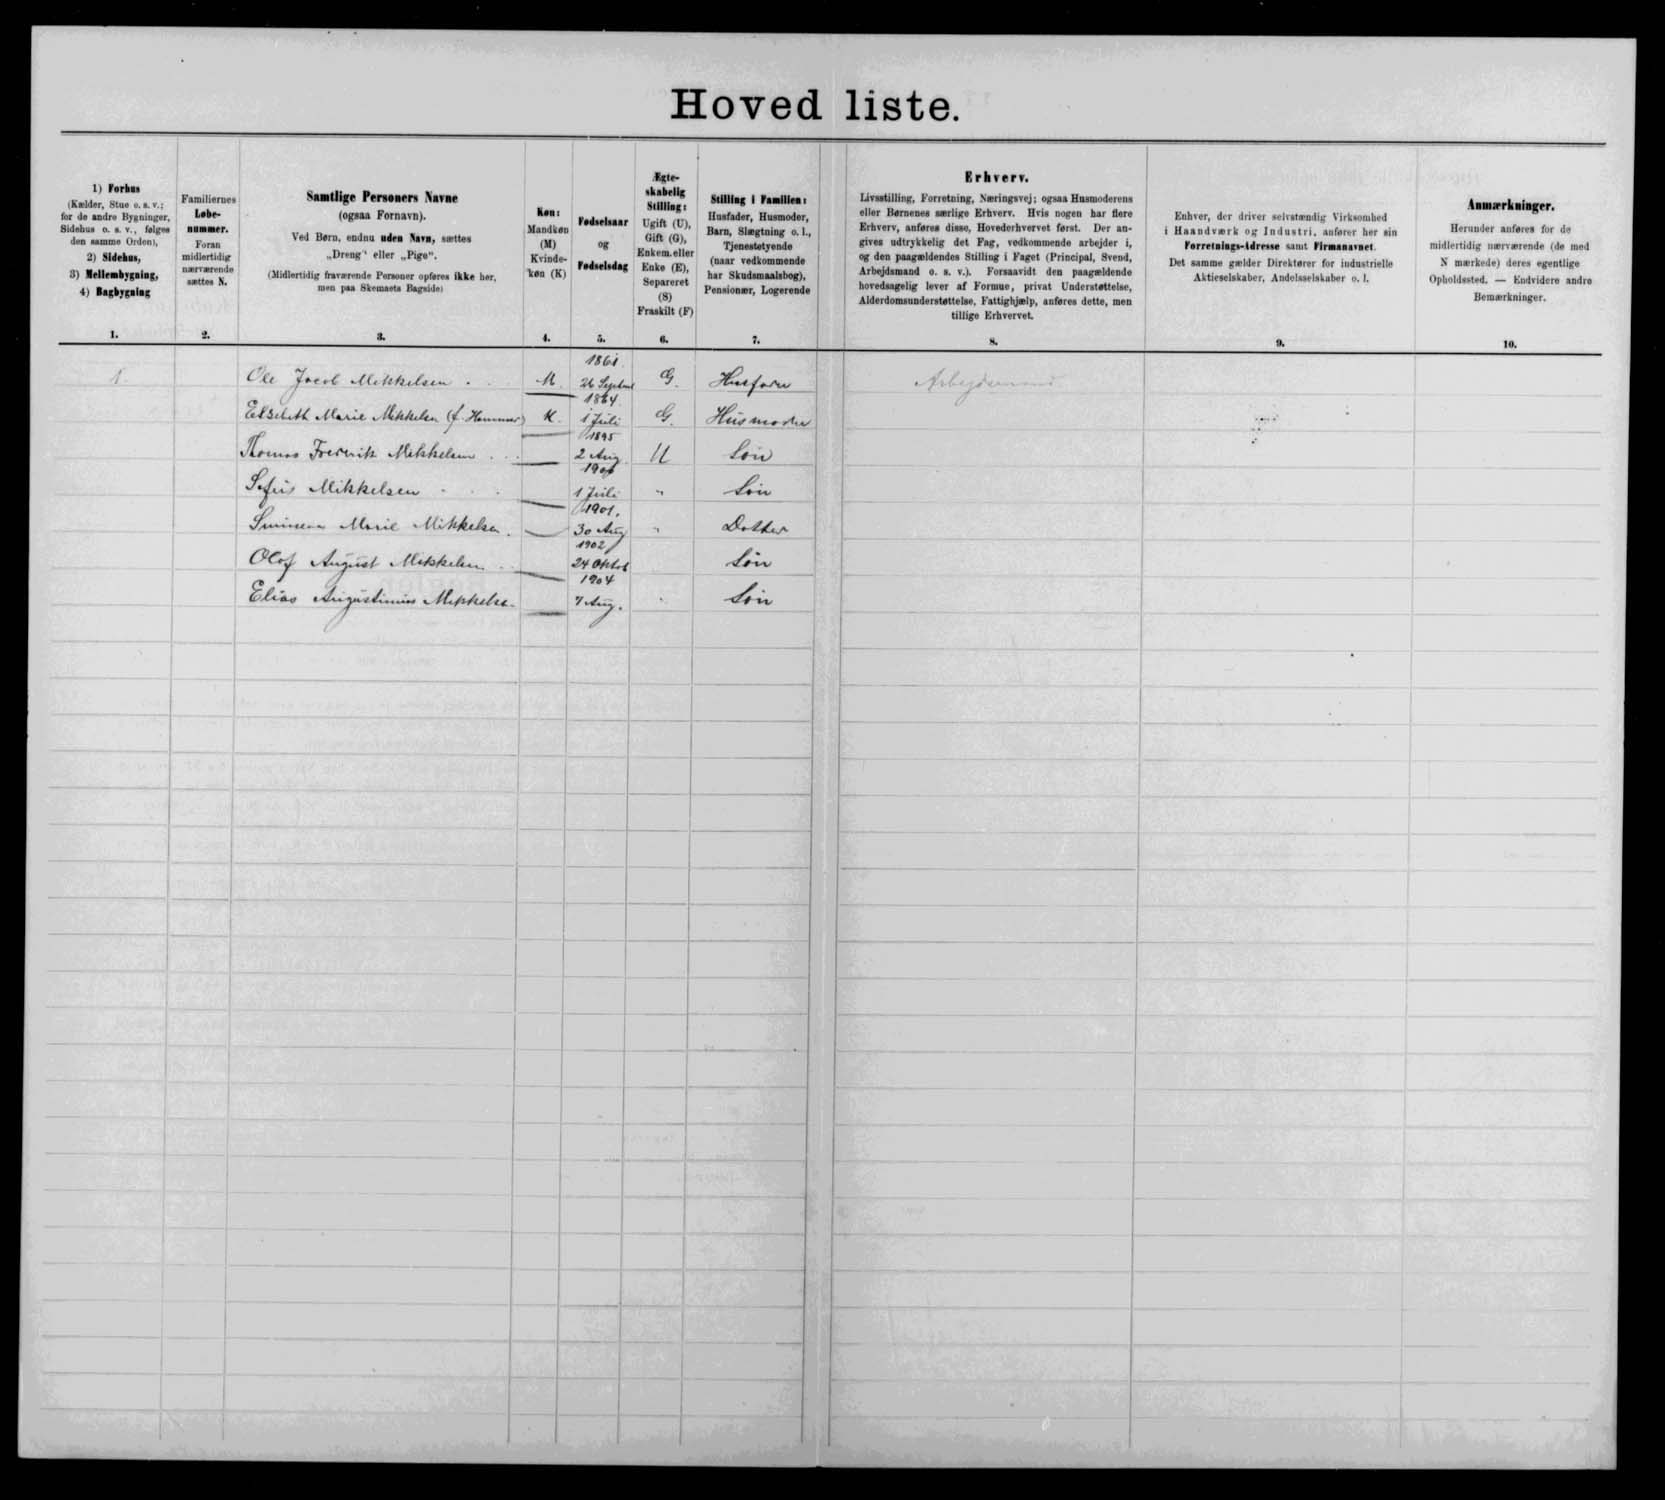 Hoved liste.
1) Forhus
(Kælder, Stue o. s. v.;
for de andre Bygninger,
Sidehus o. s. v., følges
den samme Orden),
2) Sidehus,
3) Mellembygning,
4) Bagbygning
1.
Familiernes
Løbe-
nummer.
Foran
midlertidig
nærværende
sættes N.
2.
Samtlige Personers Navne
(ogsaa Fornavn).
Ved Børn, endnu uden Navn, sættes
„Dreng“ eller „Pige“.
(Midlertidig fraværende Personer opføres ikke her,
men paa Skemaets Bagside)
3.
Køn:
Mandkøn
(M)
Kvinde-
køn (K)
4.
Fødselsaar
og
Fødselsdag
5.
Ægte-
skabelig
Stilling:
Ugift (U),
Gift (G),
Enkem. eller
Enke (E),
Separeret
(S)
Fraskilt (F)
6.
Stilling i Familien:
Husfader, Husmoder,
Barn, Slægtning o. l.,
Tjenestetyende
(naar vedkommende
har Skudsmaalsbog),
Pensionær, Logerende
7.
Erhverv.
Livsstilling, Forretning, Næringsvej; ogsaa Husmoderens
eller Børnenes særlige Erhverv. Hvis nogen har flere
Erhverv, anføres disse, Hovederhvervet først. Der an-
gives udtrykkelig det Fag, vedkommende arbejder i,
og den paagældendes Stilling i Faget (Principal, Svend,
Arbejdsmand o. s. v.). Forsaavidt den paagældende
hovedsagelig lever af Formue, privat Understøttelse,
Alderdomsunderstøttelse, Fattighjælp, anføres dette, men
tillige Erhvervet.
8.
Enhver, der driver selvstændig Virksomhed
i Haandværk og Industri, anfører her sin
Forretnings-Adresse samt Firmanavnet.
Det samme gælder Direktører for industrielle
Aktieselskaber, Andelsselskaber o. l.
9.
Anmærkninger.
Herunder anføres for de
midlertidig nærværende (de med
N mærkede) deres egentlige
Opholdssted. — Endvidere andre
Bemærkninger.
10.
1. Ole Jacob Mikkelsen . . . M. 1861. 26 Septmb G. Husfader Arbejdsmand
Elsebeth Marie Mikkelsen (f. Hammer) K. 1864 1 Juli G. Husmoder
Thomas Fredrik Mikkelsen . . . 1895 2 Aug. U Søn
Sofus Mikkelsen . . . 1900 1 Juli " Søn
Marie Mikkelsen. 1901. 30 Aug " Dotter
Olaf August Mikkelsen . . 1902 24 Oktob Søn
Elias Augustinus Mikkelse. 1904 7 Aug. " Søn